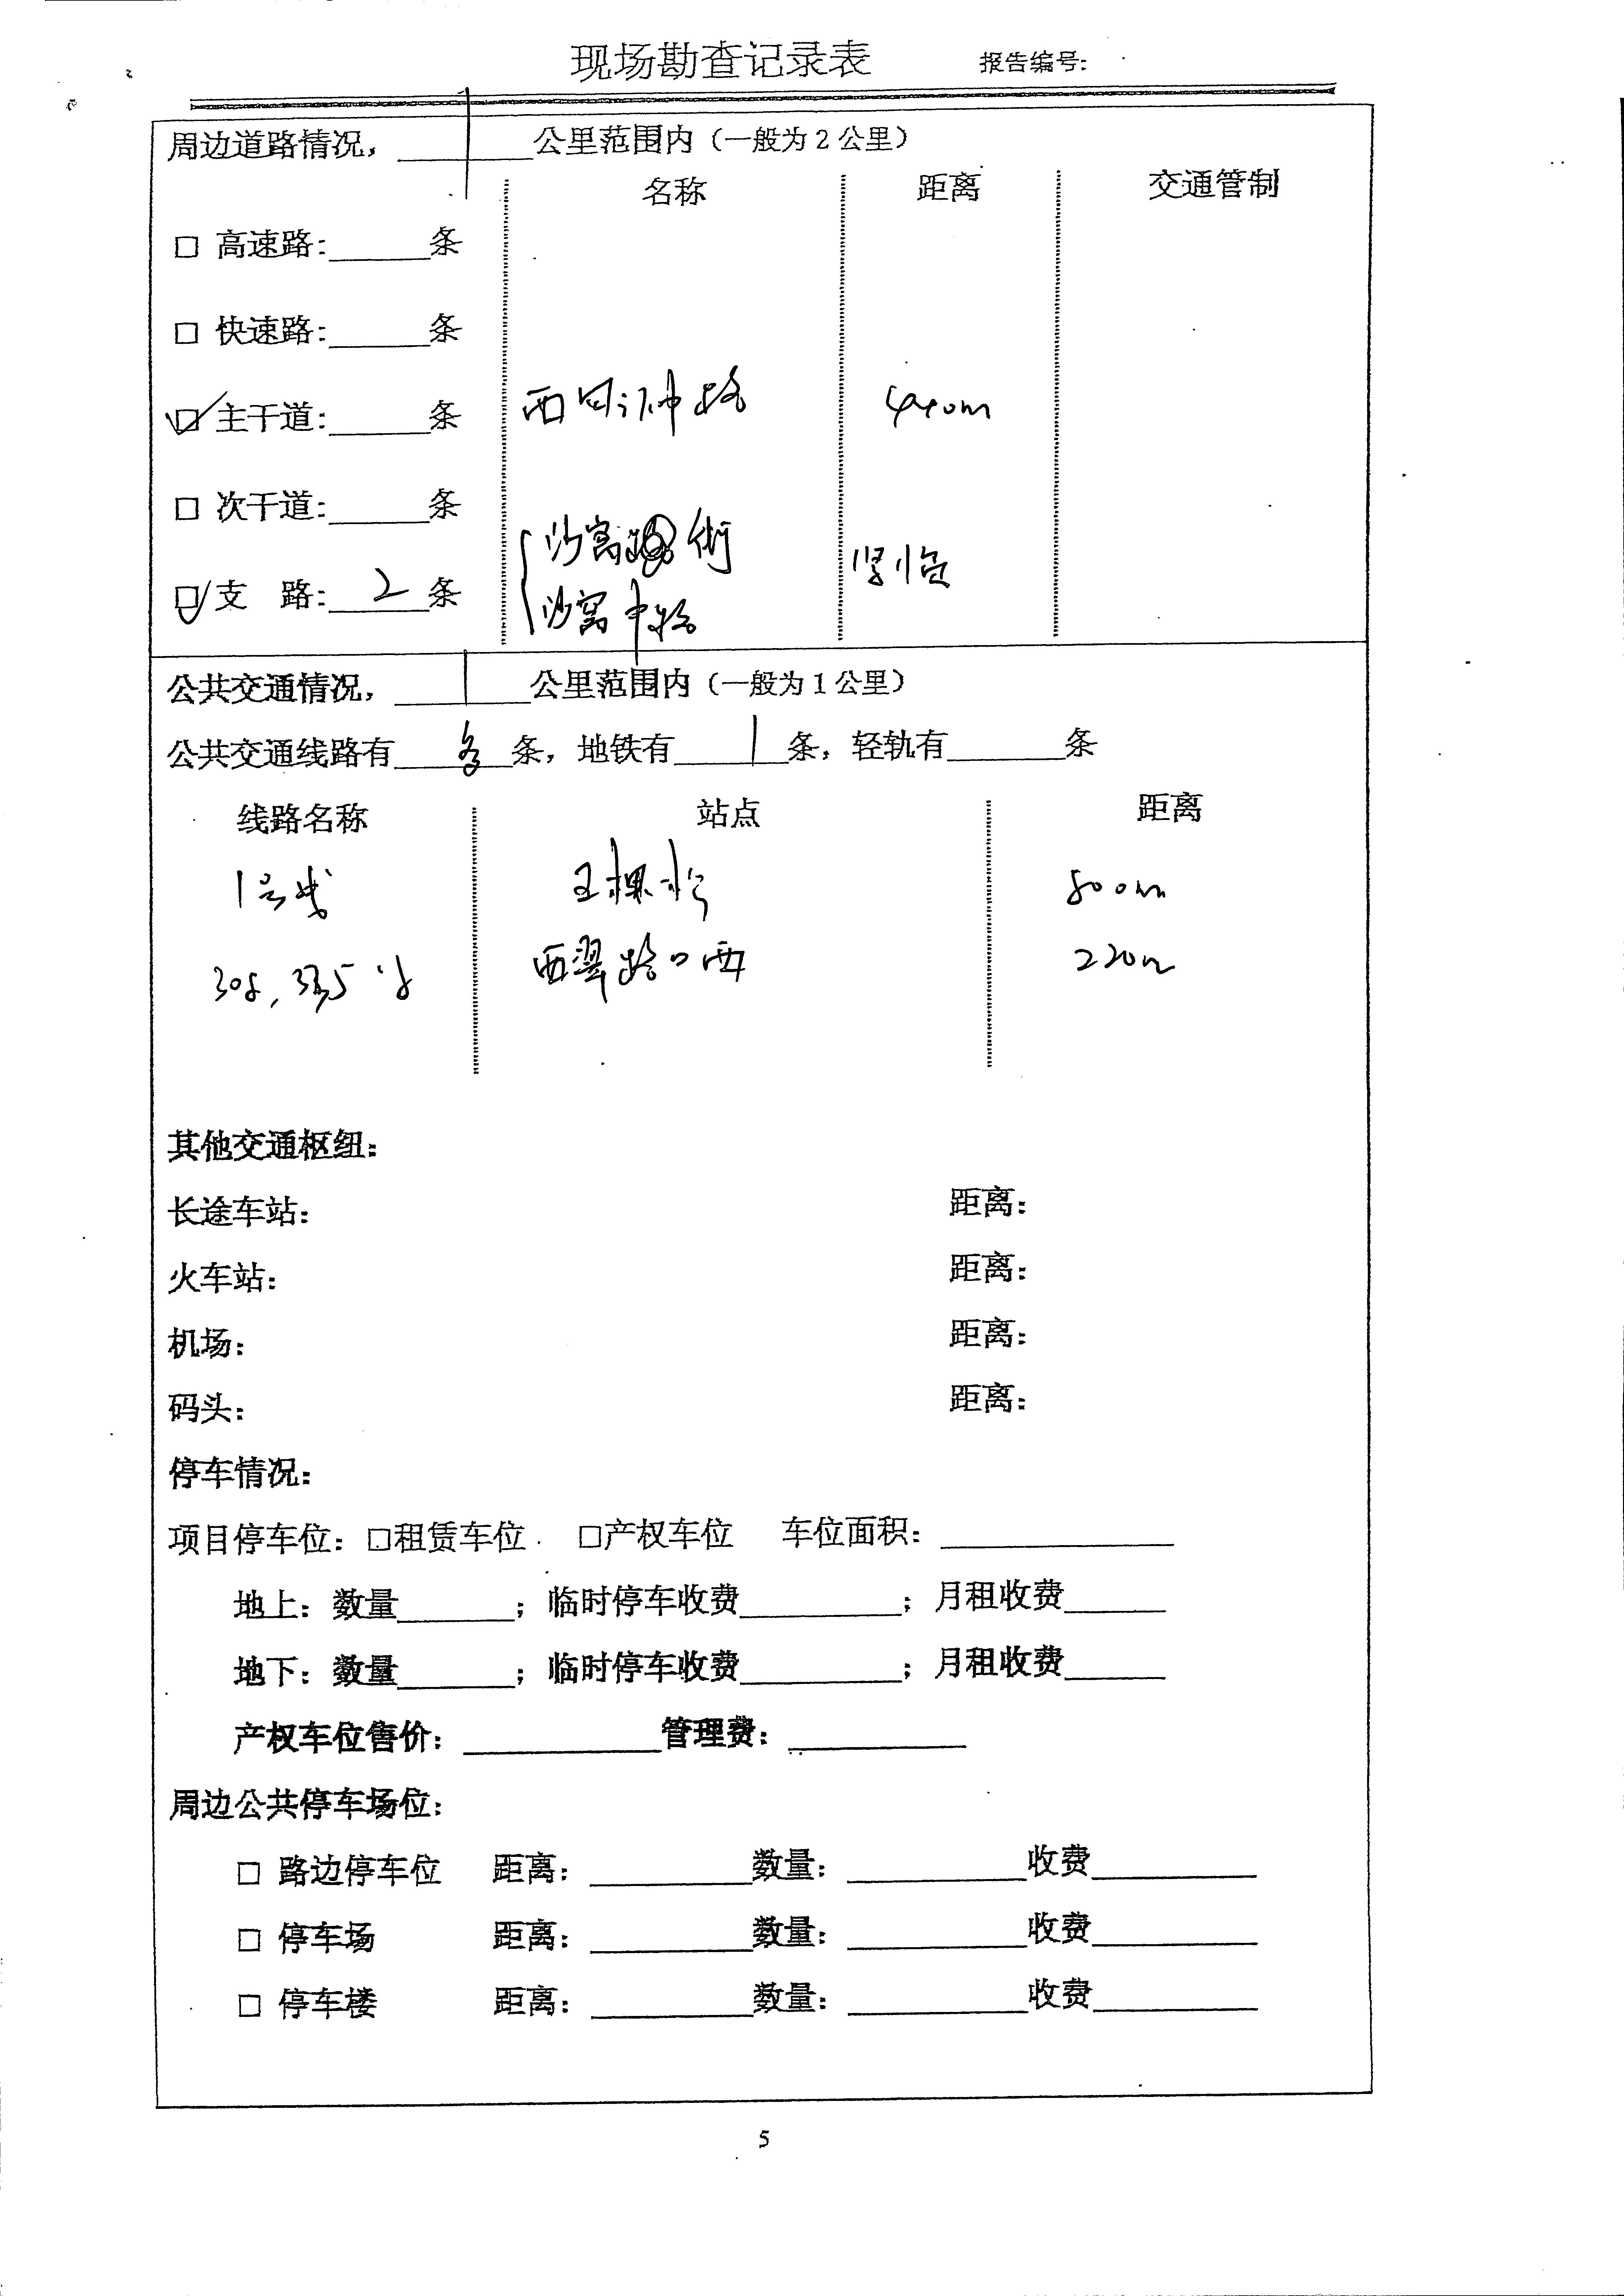 现场勘查记录表 报告编号:
周边道路情况, 1 公里范围内（一般为2公里）
名称 距离 交通管制
□ 高速路:______条
□ 快速路:______条
☑ 主干道:______条 西四环中路 440m
□ 次干道:______条
沙窝街
☑ 支 路: 2 条 紧临
沙窝中路
公共交通情况, 1 公里范围内（一般为1公里）
公共交通线路有 多 条, 地铁有 1 条, 轻轨有______条
线路名称 站点 距离
1号线 五棵松 800m
308, 335 西翠路口西 220m
其他交通枢纽:
长途车站: 距离:
火车站: 距离:
机场: 距离:
码头: 距离:
停车情况:
项目停车位: □租赁车位 □产权车位 车位面积:______
地上: 数量______; 临时停车收费______; 月租收费______
地下: 数量______; 临时停车收费______; 月租收费______
产权车位售价:______管理费:______
周边公共停车场位:
□ 路边停车位 距离:______数量:______收费______
□ 停车场 距离:______数量:______收费______
□ 停车楼 距离:______数量:______收费______
5